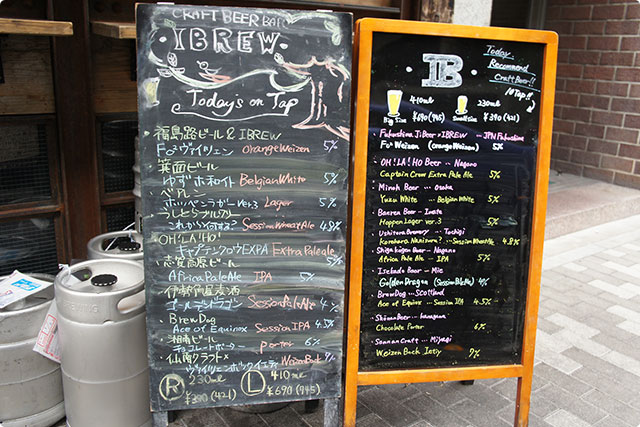 CRAFT BEER BAR
IBREW
Todays on Tap
福島路ビール & IBREW
Fo² ヴァイツェン Orange Weizen 5%
箕面ビール
ゆずホワイト Belgian White 5%
ベアレン
ホッペンラガー ver.3 Lager 5%
うしとらブルワリー
Session Wheat Ale 4.8%
OH! LA! HO!
キャプテンクロウ EXPA Extra Pale Ale 5%
志賀高原ビール
Africa Pale Ale IPA 5%
伊勢角屋麦酒
ゴールデンドラゴン Session Pale Ale 4%
BrewDog
Ace of Equinox Session IPA 4.5%
湘南ビール
チョコレートポーター porter 6%
仙南クラフト
ヴァイツェンボック Weizen Bock 7%
R 230ml ¥390 (421)
L 410ml ¥690 (745)
IB
Today
Recommend
Craft Beer!!
10 Tap!!
410ml
¥690 (745)
Big Size
230ml
¥390 (421)
Small size
Fukushima Ji Beer × IBREW — JPN Fukushima
Fo² Weizen (Orange Weizen) 5%
OH! LA! HO Beer — Nagano
Captain Crow Extra Pale Ale 5%
Minoh Beer — Osaka
Yuzu White — Belgian White 5%
Baeren Beer — Iwate
Hoppen Lager ver.3 5%
Ushitora Brewery — Tochigi
Session Wheat Ale 4.8%
Shiga kogen Beer — Nagano
Africa Pale Ale — IPA 5%
Isekado Beer — Mie
Golden Dragon (Session Pale Ale) 4%
BrewDog — Scotland
Ace of Equinox — Session IPA 4.5%
Shonan Beer — kanagawa
Chocolate Porter 6%
Sennan Craft — Miyagi
Weizen Bock 7%